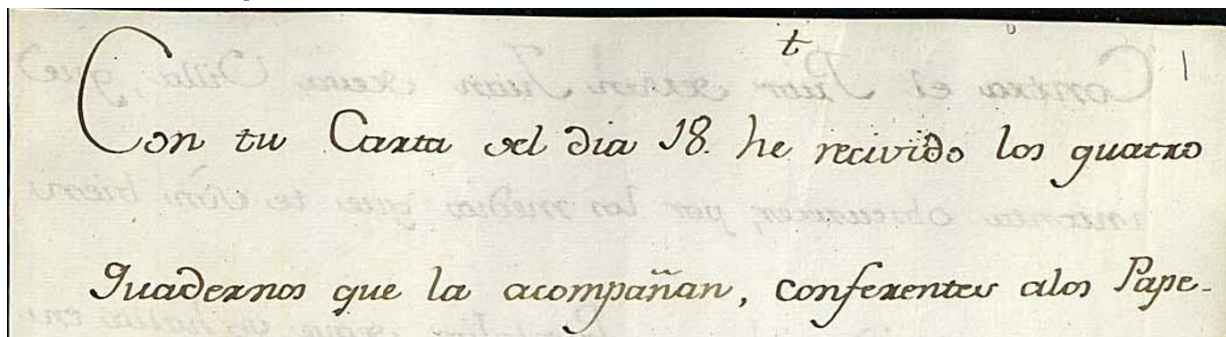 t
1
Con tu Carta del dia 18. he recivido los quatro
Quadernos que la acompañan, conferentes alos Pape-